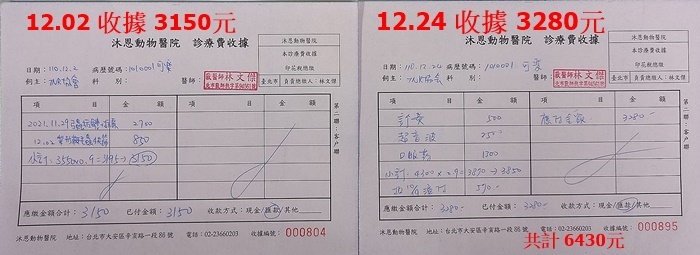 12.02 收據 3150元
沐恩動物醫院 診療費收據
日期：110.12.2 病歷號碼：1010001 可樂
飼主： 協會 科 別： 醫師：
獸醫師林文傑
本診療費收據
印花稅總繳
臺北市 負責總繳人：林文傑
項 目 金 額 項 目 金 額
2021.11.29 2700
12.02 850
小計：3550×0.9=3195→3150
應繳金額合計：3150 已付金額：3150 收款方式：現金/匯款/其他
第二聯：客戶聯
沐恩動物醫院 地址：台北市大安區辛亥路一段86號 電話：02-23660203 收據編號：000804
12.24 收據 3280元
沐恩動物醫院 診療費收據
日期：110.12.24 病歷號碼：1010001 可樂
飼主： 協會 科 別： 醫師：
獸醫師林文傑
本診療費收據
印花稅總繳
臺北市 負責總繳人：林文傑
項 目 金 額 項 目 金 額
500 應付金額 3280-
超音波
1300
小計：4300×0.9=3870→3850
應繳金額合計：3280- 已付金額：3280- 收款方式：現金/匯款/其他
第二聯：客戶聯
沐恩動物醫院 地址：台北市大安區辛亥路一段86號 電話：02-23660203 收據編號：000895
共計 6430元